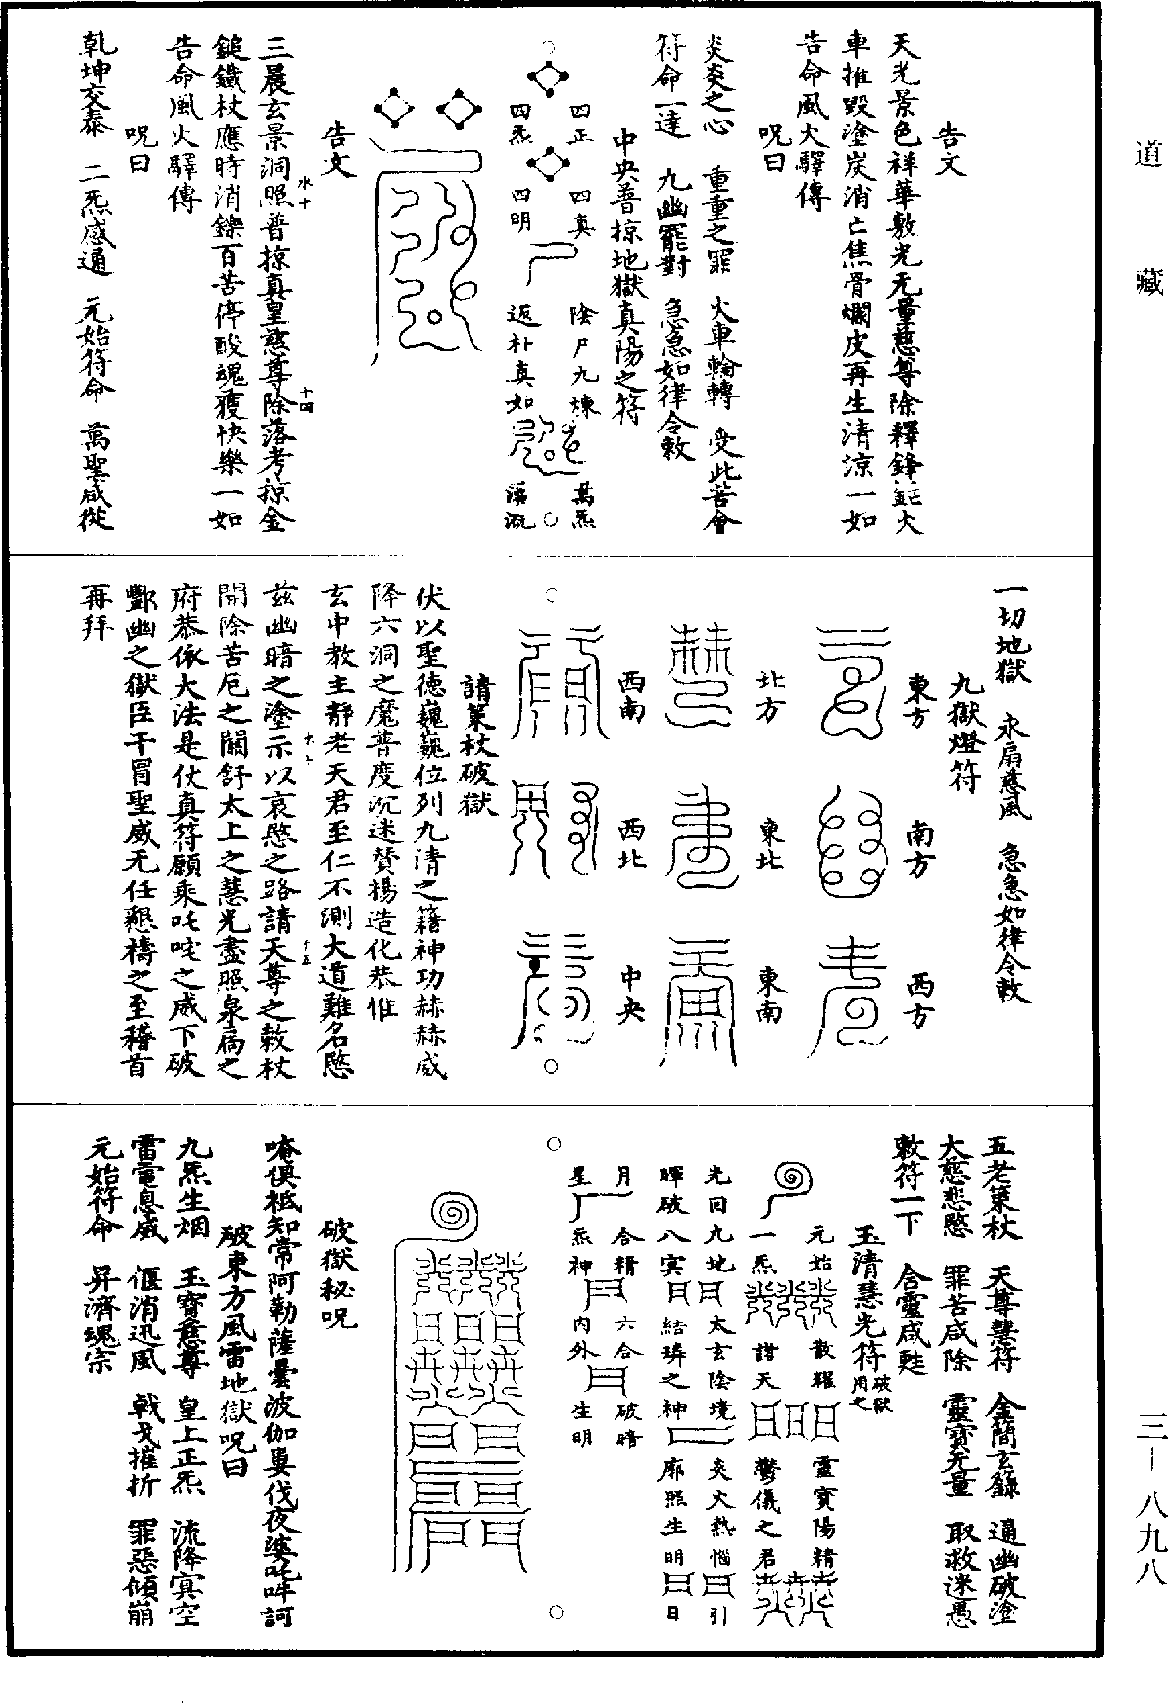 道藏
三—八九八
告文
天光景色祥華敷光无量慈尊除釋鋒鋩火
車摧毀塗炭消亡焦骨爛皮再生清涼一如
告命風火驛傳
呪曰
炎炎之心 重重之罪 火車輪轉 受此苦會
符命一達 九幽罷對 急急如律令敕
中央普掠地獄真陽之符
四正 四真 陰尸九煉 萬炁
四炁 四明 返朴真如
告文
三晨玄景洞照普掠真皇慈尊除落考掠金
鎚鐵杖應時消鑠百苦停酸魂獲快樂一如
告命風火驛傳
呪曰
乾坤交泰 二炁感通 元始符命 萬聖咸從
一切地獄 永扇慈風 急急如律令敕
九獄燈符
東方 南方 西方
北方 東北 東南
西南 西北 中央
請策杖破獄
伏以聖德巍巍位列九清之籍神功赫赫威
降六洞之魔普度沉迷贊揚造化恭惟
玄中教主靜老天君至仁不測大道難名愍
茲幽暗之塗示以哀愍之路請天尊之敕杖
開除苦厄之關舒太上之慧光盡照泉扃之
府恭依大法是仗真符願乘吒咤之威下破
酆幽之獄臣干冒聖威无任懇禱之至稽首
再拜
五老策杖 天尊慧符 金簡玄籙 通幽破塗
大慈悲愍 罪苦咸除 靈寶无量 取救迷愚
敕符一下 含靈咸甦
玉清慧光符破獄用之
元始 散耀 靈寶陽精
一炁 諸天 鬱儀之君
光回九地 太玄陰境 炎火熱惱 引
暉破八冥 結璘之神 廓照生明 日
月 合精 六合 破暗
星 炁神 內外 生明
破獄秘呪
唵俱祗知常阿勒薩曇波伽婁伐夜婆吒吽訶
破東方風雷地獄呪曰
九炁生烟 玉寶慈尊 皇上正炁 流降冥空
雷電息威 偃消迅風 戟戈摧折 罪惡傾崩
元始符命 昇濟魂宗